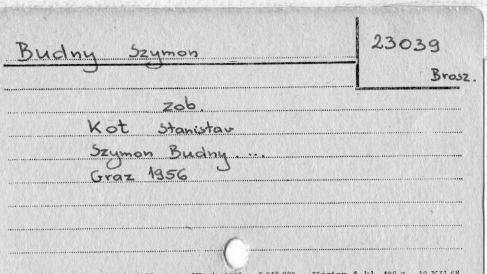 Budny Szymon
23039
Brosz.
zob.
Kot Stanisław
Szymon Budny. ...
Graz 1956